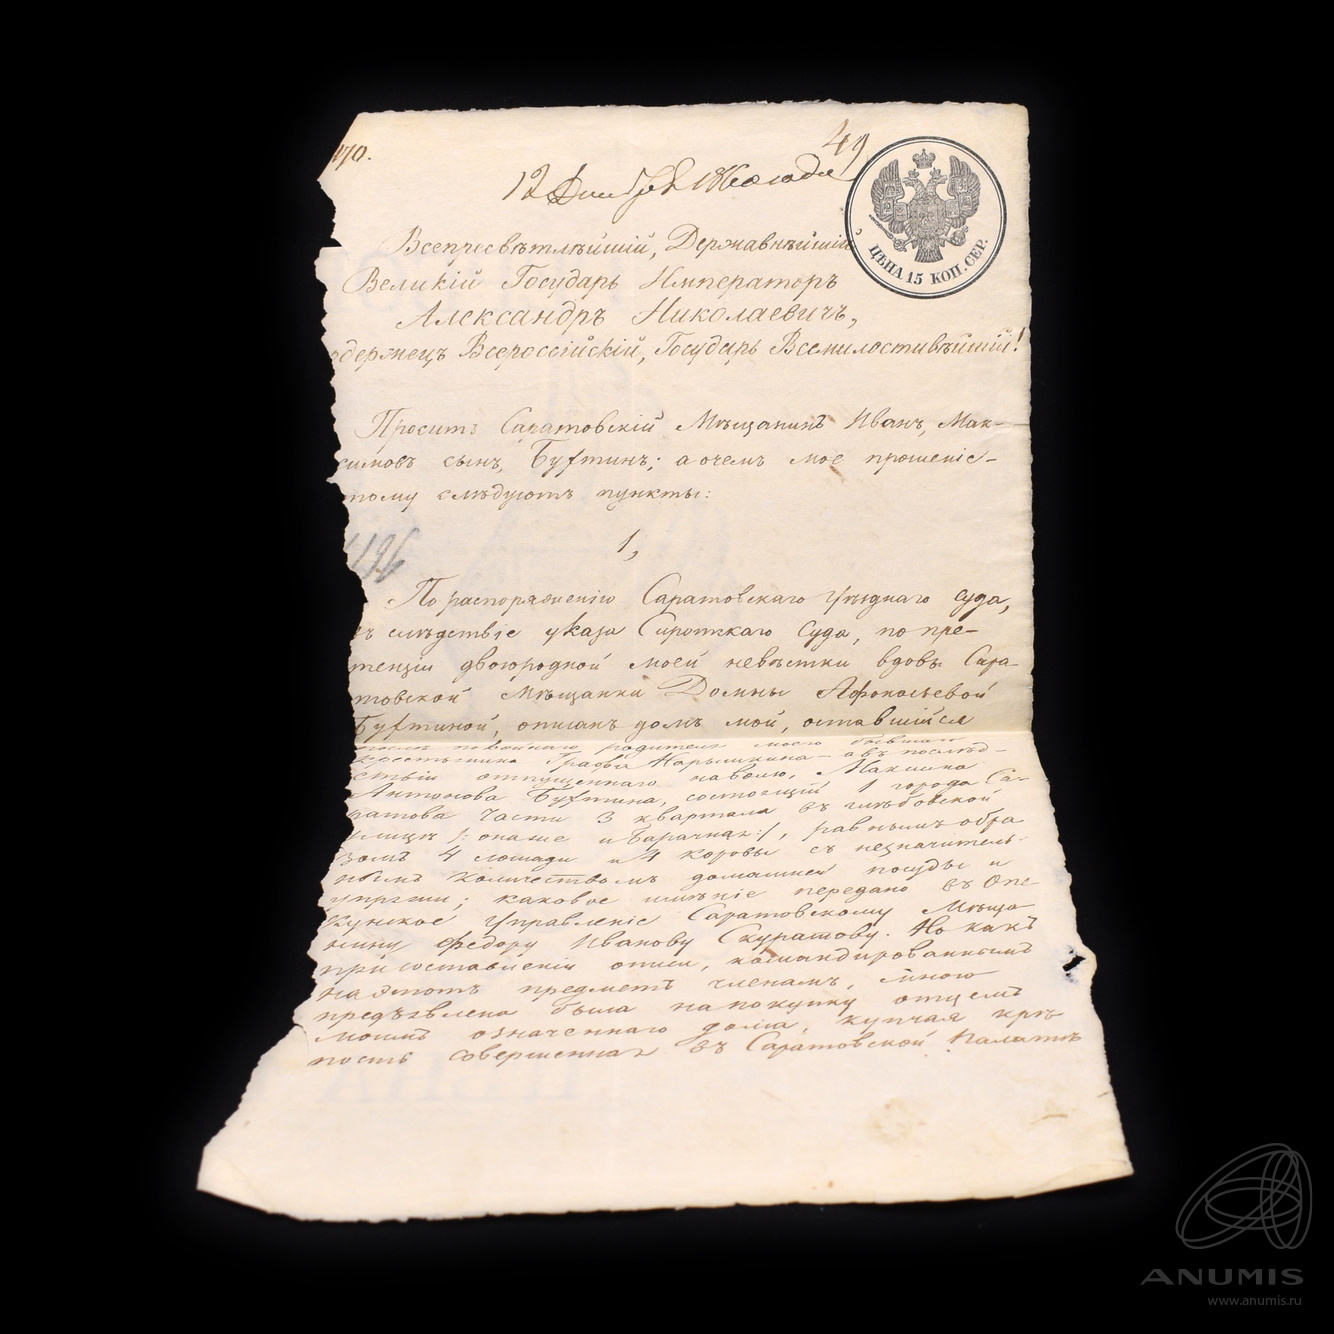 470.
49
12
ЦѢНА 15 КОП. СЕР.
Всепресвѣтлѣйшій, Державнѣйшій
Великій Государь Императоръ
Александръ Николаевичъ,
одержецъ Всероссійскій, Государь Всемилостивѣйшій!
Проситъ Саратовскій Мѣщанинъ Иванъ, Мак-
симовъ сынъ, Бухтинъ; а очемъ мое прошеніе-
тому слѣдуютъ пункты:
1,
По распоряженію Саратовскаго Уѣзднаго Суда,
въ слѣдствіе указа Сиротскаго Суда, по пре-
тензіи двоюродной моей невѣстки вдовы Сара-
товской Мѣщанки Домны Афонасьевой
Бухтиной, описанъ домъ мой, оставшійся
послѣ покойнаго родителя моего бывшаго
крестьянина Графа Нарышкина - а въ послѣд-
ствіи отпущеннаго наволю, Максима
Антонова Бухтина, состоящій 1 города Са-
ратова части 3 квартала въ глѣбовской
улицѣ /: онаже и Барачная :/, равнымъ обра
зомъ 4 лошади и 4 коровы съ незначитель-
нымъ количествомъ домашней посуды и
упряжи; каковое имѣніе передано въ Опе-
кунское Управленіе Саратовскому Мѣща
нину Федору Иванову Скуратову. Но какъ
при составленіи описи, командированнымъ
на этотъ предметъ членамъ, мною
предъявлена была на покупку отцемъ
моимъ означеннаго дома, купчая крѣ-
пость совершенная въ Саратовской Палатѣ
ANUMIS
www.anumis.ru